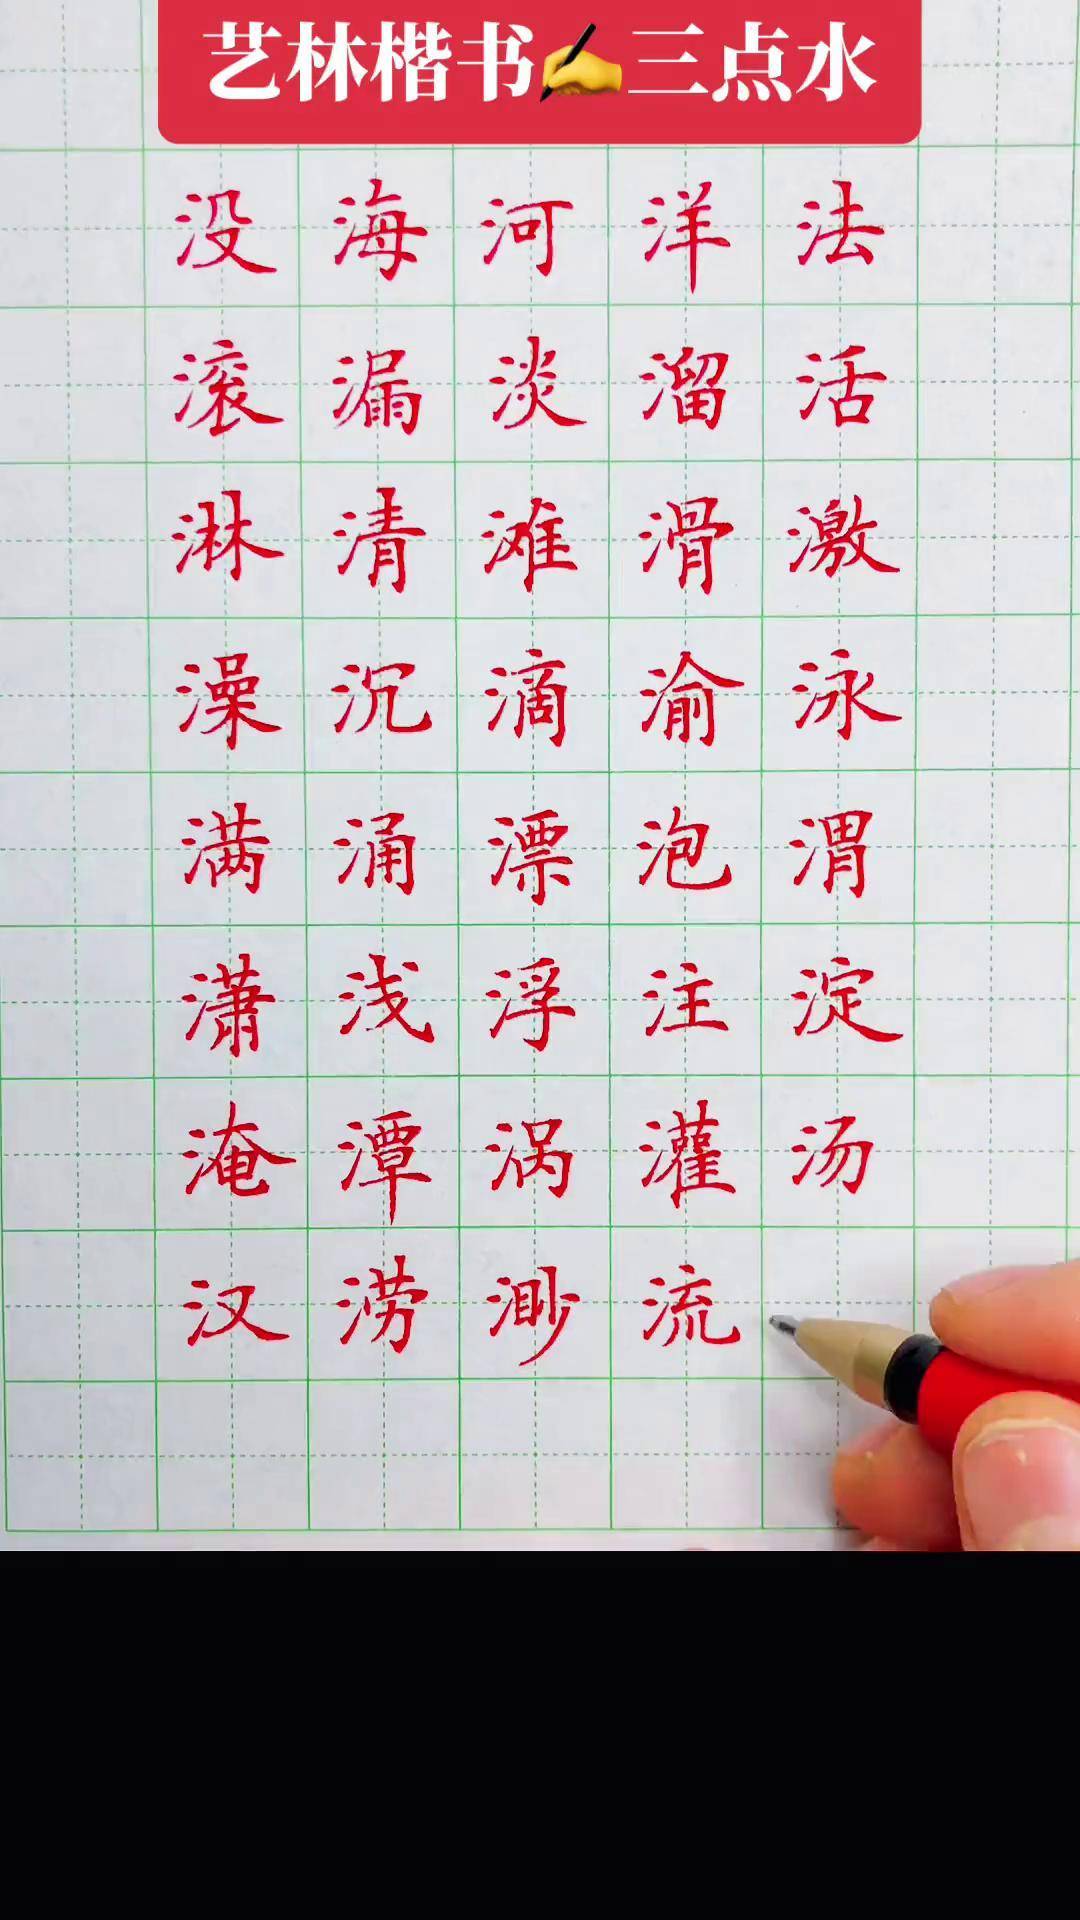 艺林楷书✍三点水
没海河洋法
滚漏淡溜活
淋清滩滑激
澡沉滴渝泳
满涌漂泡渭
潇浅浮注淀
淹潭涡灌汤
汉涝渺流